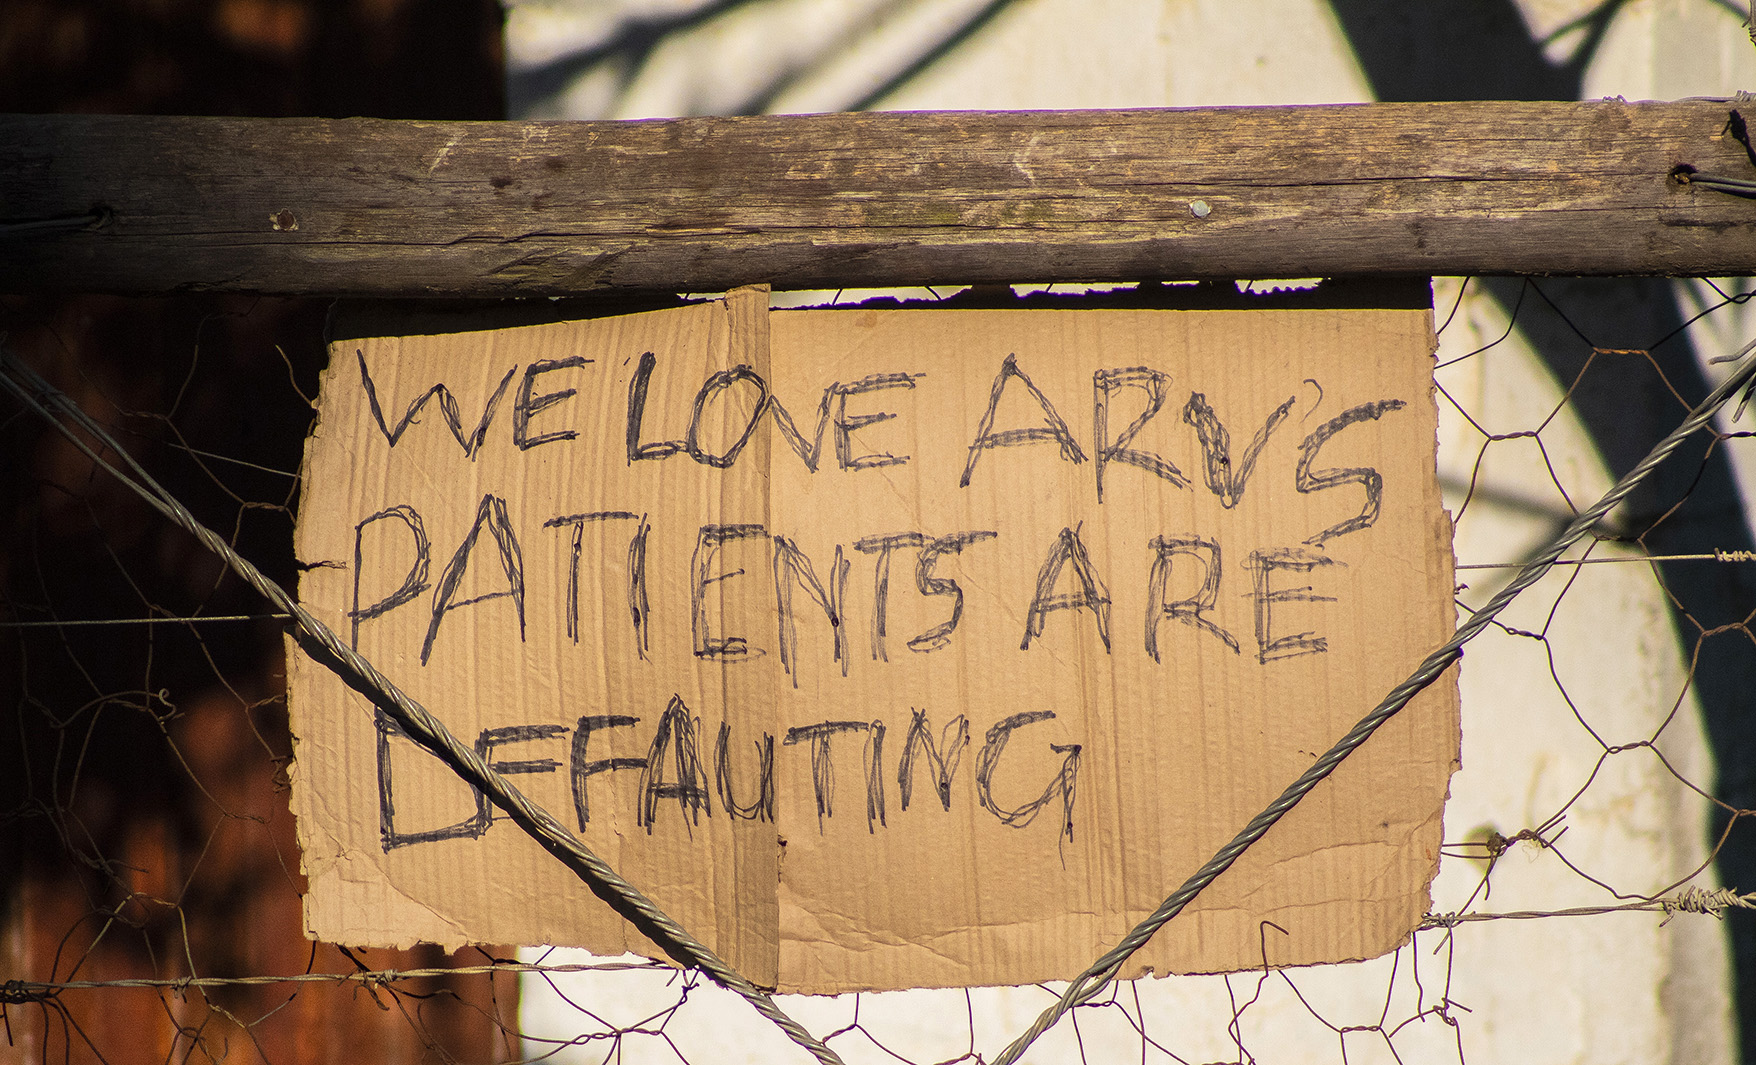 WE LOVE ARV'S
PATIENTS ARE
DEFAUTING